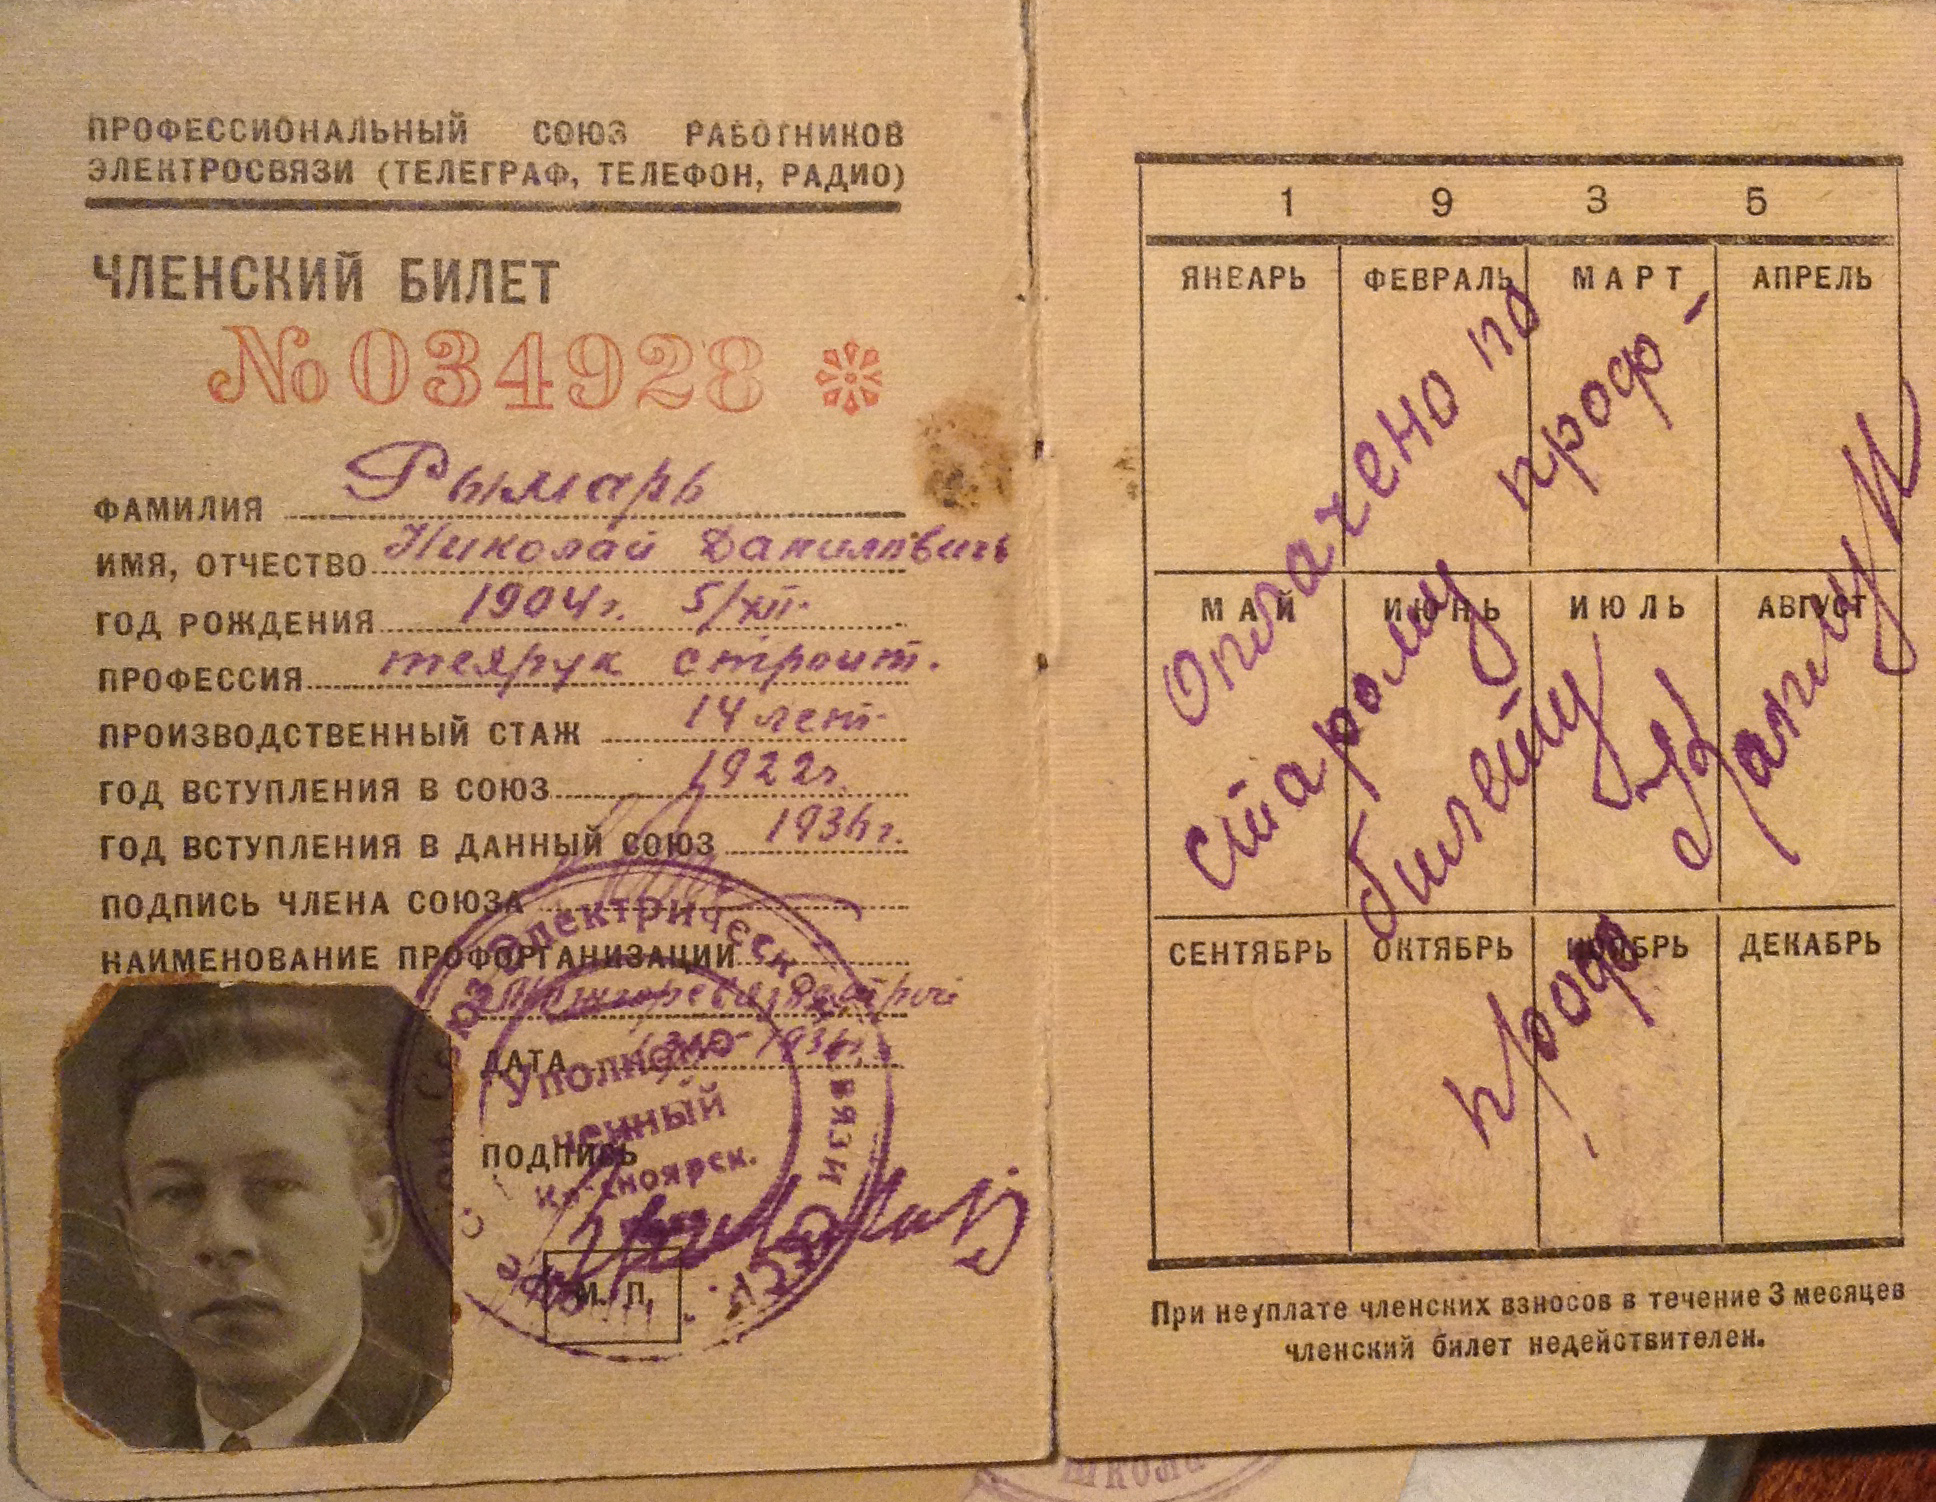 ПРОФЕССИОНАЛЬНЫЙ СОЮЗ РАБОТНИКОВ
ЭЛЕКТРОСВЯЗИ (ТЕЛЕГРАФ, ТЕЛЕФОН, РАДИО)
ЧЛЕНСКИЙ БИЛЕТ
№ 034928
ФАМИЛИЯ Рымарь
ИМЯ, ОТЧЕСТВО Николай Данилович
ГОД РОЖДЕНИЯ 1904 г. 5/XII.
ПРОФЕССИЯ строит.
ПРОИЗВОДСТВЕННЫЙ СТАЖ 14 лет
ГОД ВСТУПЛЕНИЯ В СОЮЗ 1922г.
ГОД ВСТУПЛЕНИЯ В ДАННЫЙ СОЮЗ 1936г.
ПОДПИСЬ ЧЛЕНА СОЮЗА
НАИМЕНОВАНИЕ ПРОФОРГАНИЗАЦИИ
ДАТА 1936г.
ПОДПИСЬ
М. П.
Союз Электрической связи СССР
Уполномо
ченный
Красноярск.
1 9 3 5
ЯНВАРЬ ФЕВРАЛЬ МАРТ АПРЕЛЬ
МАЙ ИЮНЬ ИЮЛЬ АВГУСТ
СЕНТЯБРЬ ОКТЯБРЬ НОЯБРЬ ДЕКАБРЬ
Оплачено по
старому проф-
билету
проф
При неуплате членских взносов в течение 3 месяцев
членский билет недействителен.
школа